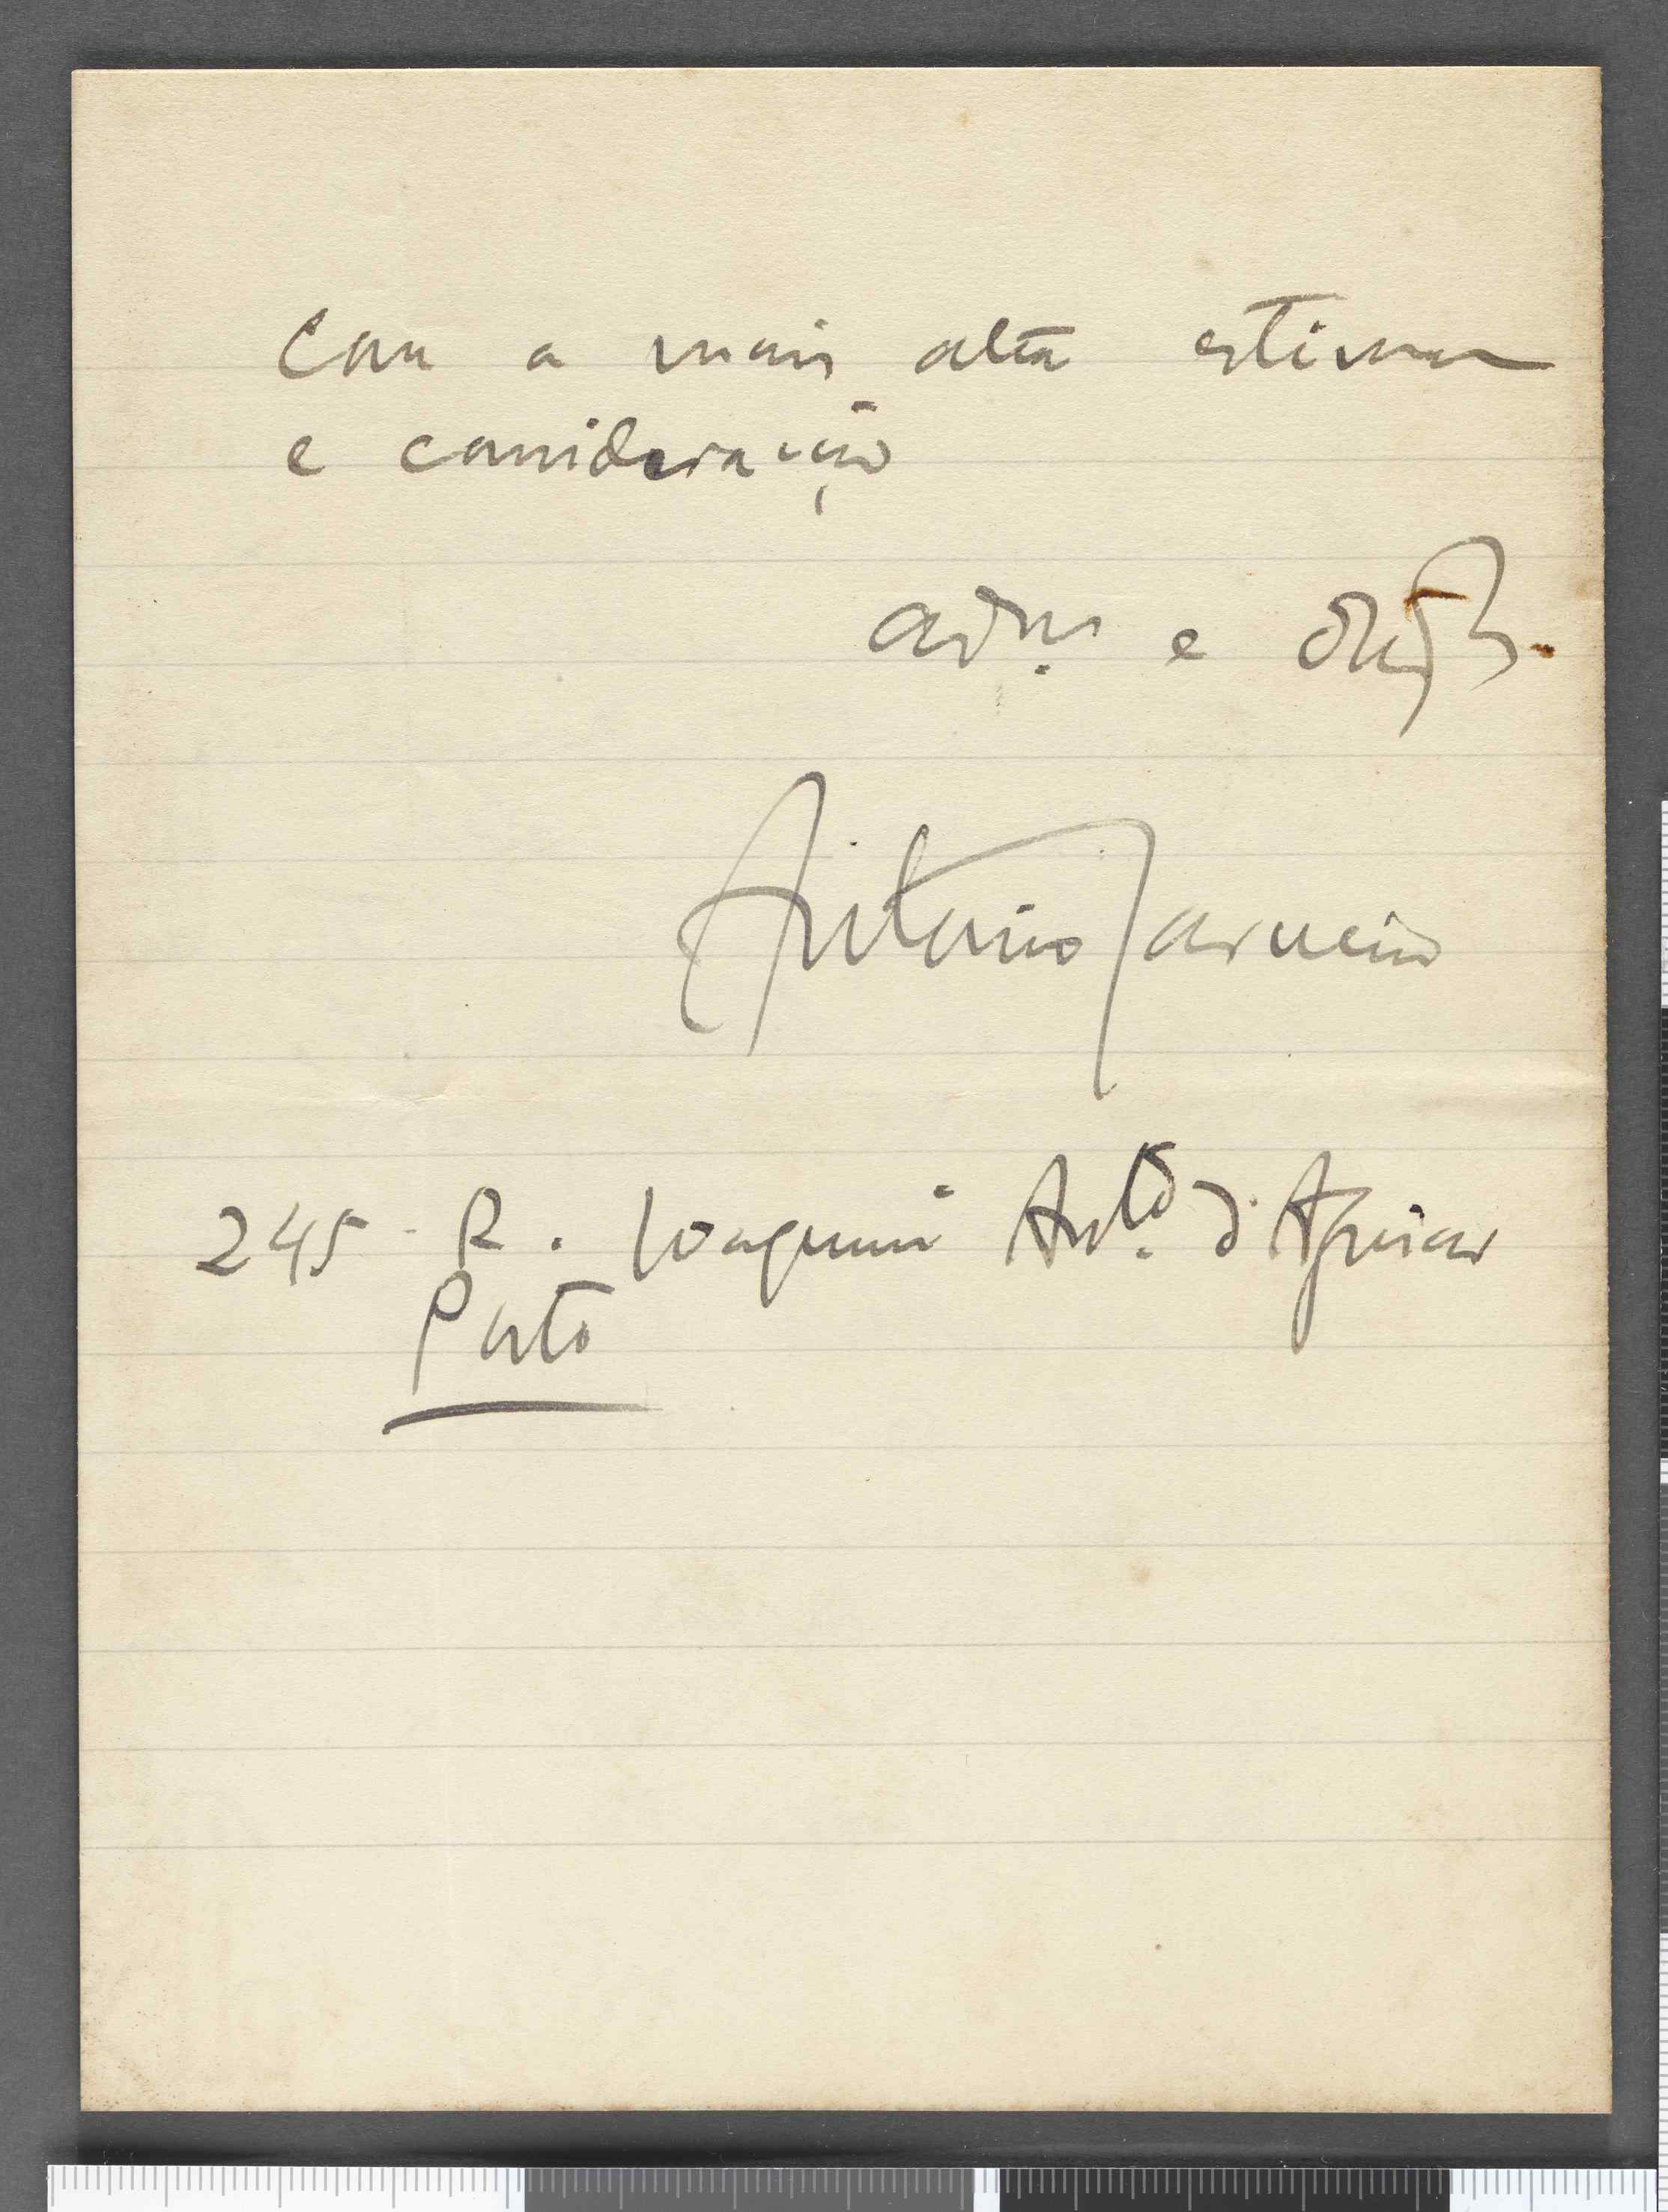 Com a mais alta estima
e consideração
adm.or e obrg.do
Antonio Carneiro
245 - R. Joaquim Ant.o d'Aguiar
Porto